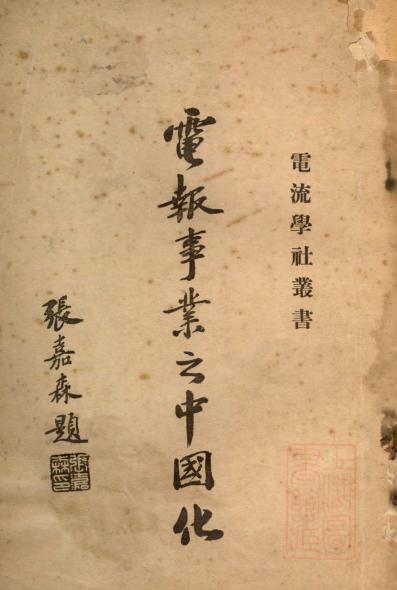 電流學社叢書
電報事業之中國化
張嘉森題
張嘉森印